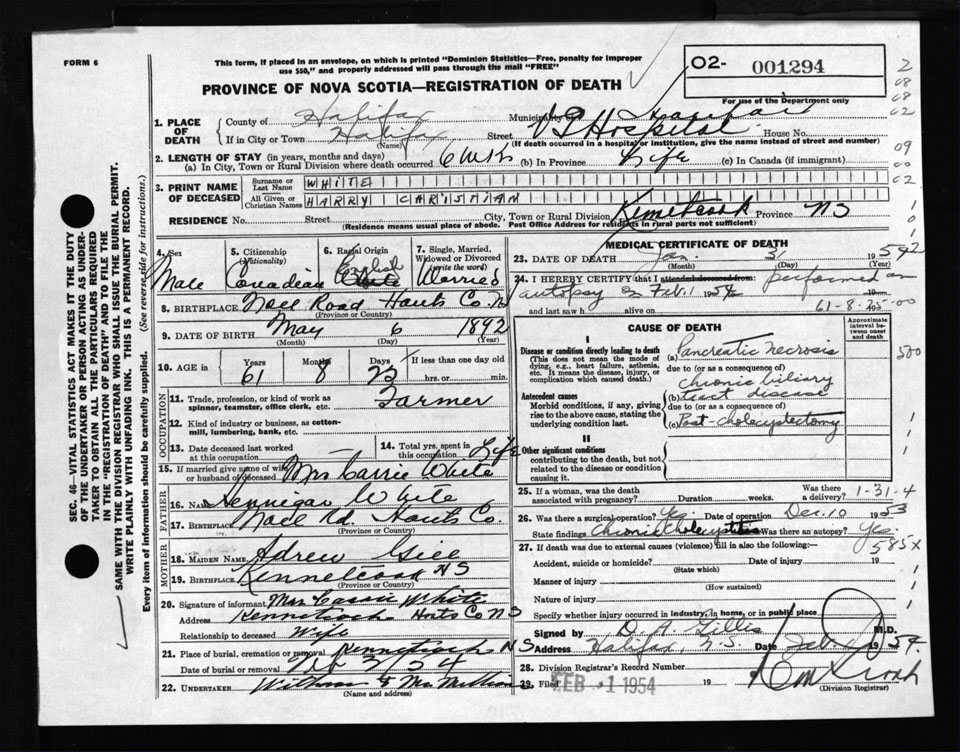 FORM 6
This form, if placed in an envelope, on which is printed "Dominion Statistics—Free, penalty for improper
use $50," and properly addressed will pass through the mail "FREE"
PROVINCE OF NOVA SCOTIA—REGISTRATION OF DEATH
02- 001294
For use of the Department only
1. PLACE OF DEATH
County of Halifax Municipality Halifax
If in City or Town Halifax Street VG Hospital House No.
(Name) (If death occurred in a hospital or institution, give the name instead of street and number)
2. LENGTH OF STAY (in years, months and days)
(a) In City, Town or Rural Division where death occurred 6 wks (b) In Province Life (c) In Canada (if immigrant)
3. PRINT NAME OF DECEASED
Surname or Last Name WHITE
All Given or Christian Names HARRY CHRISTIAN
RESIDENCE No. Street City, Town or Rural Division Kennetcook Province NS
(Residence means usual place of abode. Post Office Address for residents in rural parts not sufficient)
4. Sex 5. Citizenship (Nationality) 6. Racial Origin 7. Single, Married, Widowed or Divorced (write the word)
Male Canadian White English Married
8. BIRTHPLACE Noel Road Hants Co. NS
(Province or Country)
9. DATE OF BIRTH May 6 1892
(Month) (Day) (Year)
10. AGE in Years Months Days If less than one day old
61 8 25 hrs. or min.
OCCUPATION
11. Trade, profession, or kind of work as spinner, teamster, office clerk, etc. Farmer
12. Kind of industry or business, as cotton-mill, lumbering, bank, etc.
13. Date deceased last worked at this occupation 14. Total yrs. spent in this occupation Life
15. If married give name of wife or husband of deceased Mrs Carrie White
FATHER
16. NAME Hennigar White
17. BIRTHPLACE Noel Rd. Hants Co.
MOTHER
18. MAIDEN NAME Adrew Gill
19. BIRTHPLACE Kennetcook NS
(Province or Country)
20. Signature of informant Mrs Carrie White
Address Kennetcook Hants Co NS
Relationship to deceased Wife
21. Place of burial, cremation or removal Kennetcook NS
Date of burial or removal Feb 3/54
22. UNDERTAKER
(Name and address)
SEC. 46—VITAL STATISTICS ACT MAKES IT THE DUTY
OF THE UNDERTAKER OR PERSON ACTING AS UNDER-
TAKER TO OBTAIN ALL THE PARTICULARS REQUIRED
IN THE "REGISTRATION OF DEATH" AND TO FILE THE
SAME WITH THE DIVISION REGISTRAR WHO SHALL ISSUE THE BURIAL PERMIT.
WRITE PLAINLY WITH UNFADING INK. THIS IS A PERMANENT RECORD.
Every item of information should be carefully supplied. (See reverse side for instructions.)
MEDICAL CERTIFICATE OF DEATH
23. DATE OF DEATH Jan. 31 1954
(Month) (Day)
24. I HEREBY CERTIFY that I attended deceased from: performed an
autopsy on Feb. 1 1954 19
and last saw h alive on 19
61-8-25-00
CAUSE OF DEATH
Approximate interval between onset and death
I
Disease or condition directly leading to death
(This does not mean the mode of dying, e.g., heart failure, asthenia, etc. It means the disease, injury, or complication which caused death.)
(a) Pancreatic necrosis
due to (or as a consequence of)
Antecedent causes
Morbid conditions, if any, giving rise to the above cause, stating the underlying condition last.
(b) chronic biliary tract disease
due to (or as a consequence of)
(c) Post-cholecystectomy
II
Other significant conditions
contributing to the death, but not related to the disease or condition causing it.
25. If a woman, was the death associated with pregnancy? Duration weeks. Was there a delivery? 1-31-4
26. Was there a surgical operation? Yes. Date of operation Dec. 10 1953
State findings Chronic Cholecystitis Was there an autopsy? Yes.
585X
27. If death was due to external causes (violence) fill in also the following:—
Accident, suicide or homicide? Date of injury 19
(State which)
Manner of injury
(How sustained)
Nature of injury
Specify whether injury occurred in industry, in home, or in public place
Signed by D. A. Gillis M.D.
Address Halifax, N.S. Date Feb. 1954.
28. Division Registrar's Record Number
29. Filed FEB -1 1954 19
(Division Registrar)